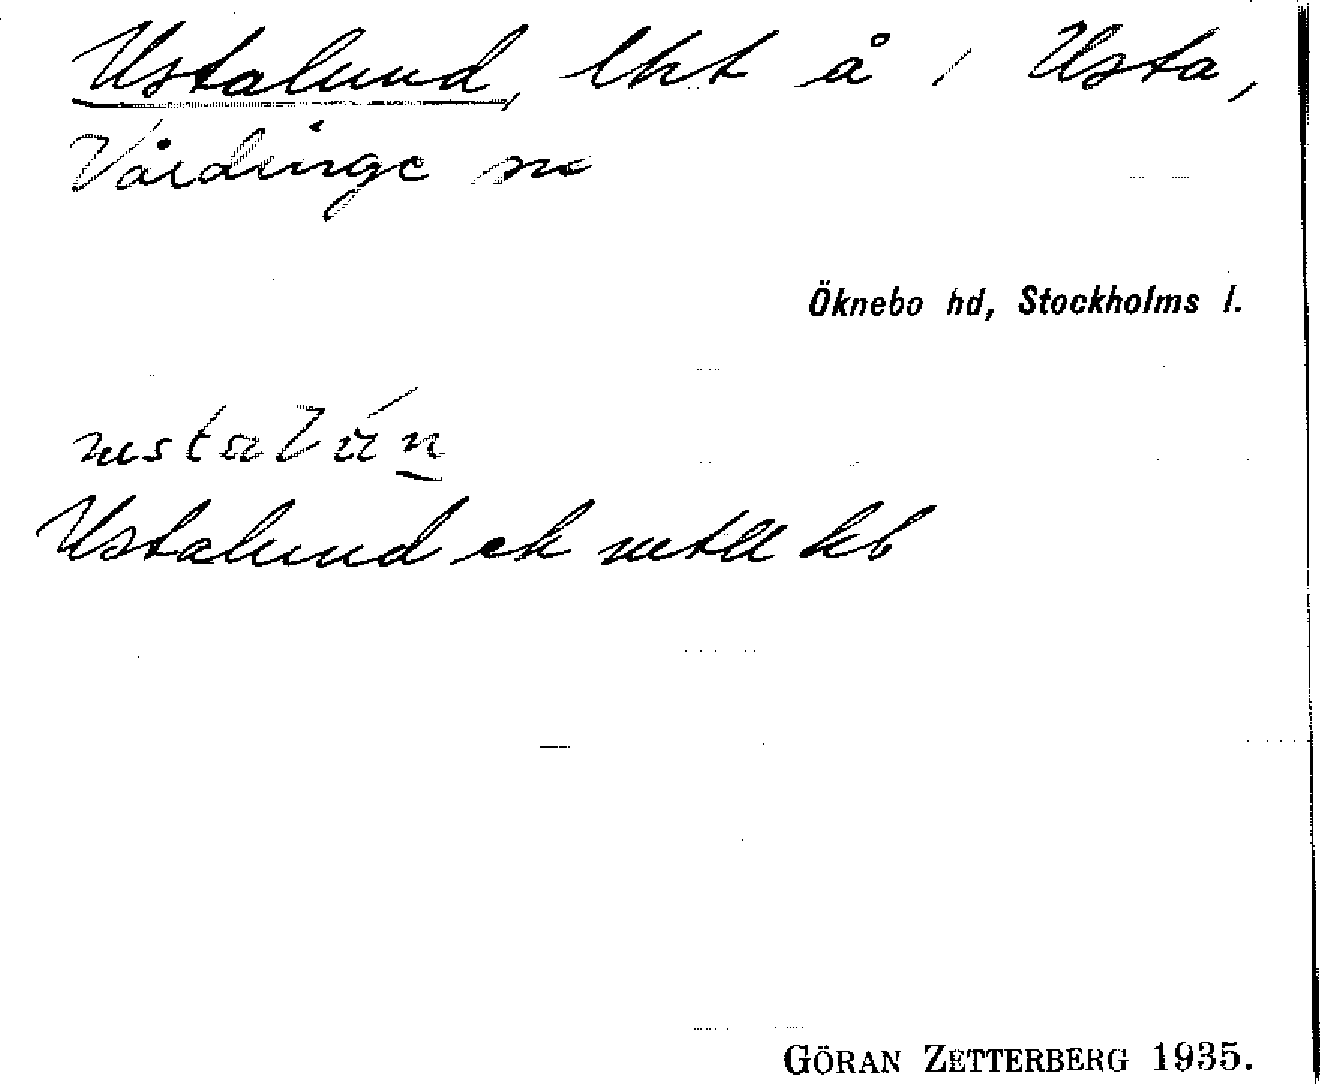 Ustalund, lht å 1 Usta,
Vårdinge sn
Öknebo hd, Stockholms l.
Ustalund ek utll kb
GÖRAN ZETTERBERG 1935.